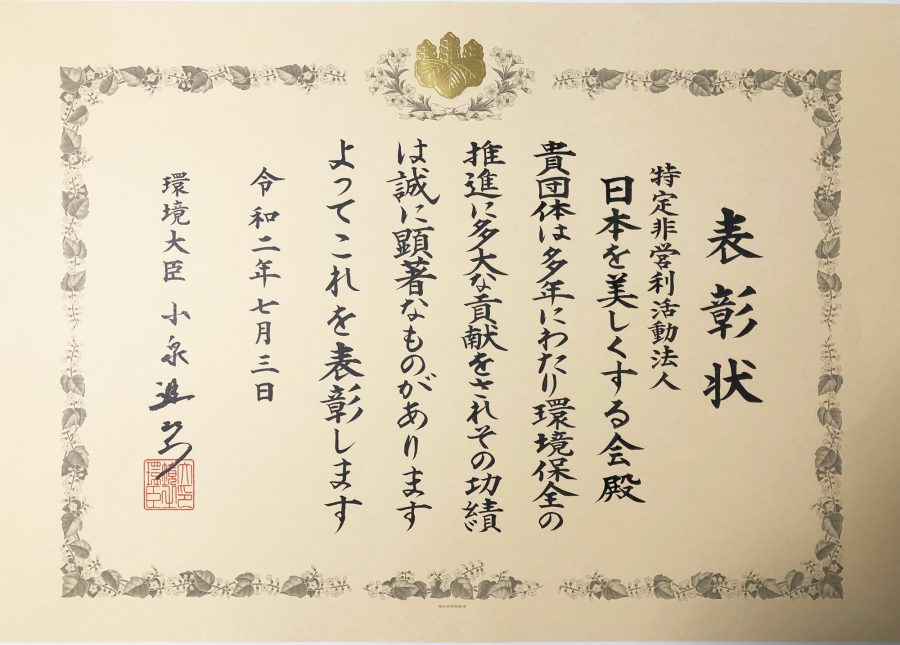 表彰状
特定非営利活動法人
日本を美しくする会殿
貴団体は多年にわたり環境保全の
推進に多大な貢献をされその功績
は誠に顕著なものがあります
よってこれを表彰します
令和二年七月三日
環境大臣 小泉進